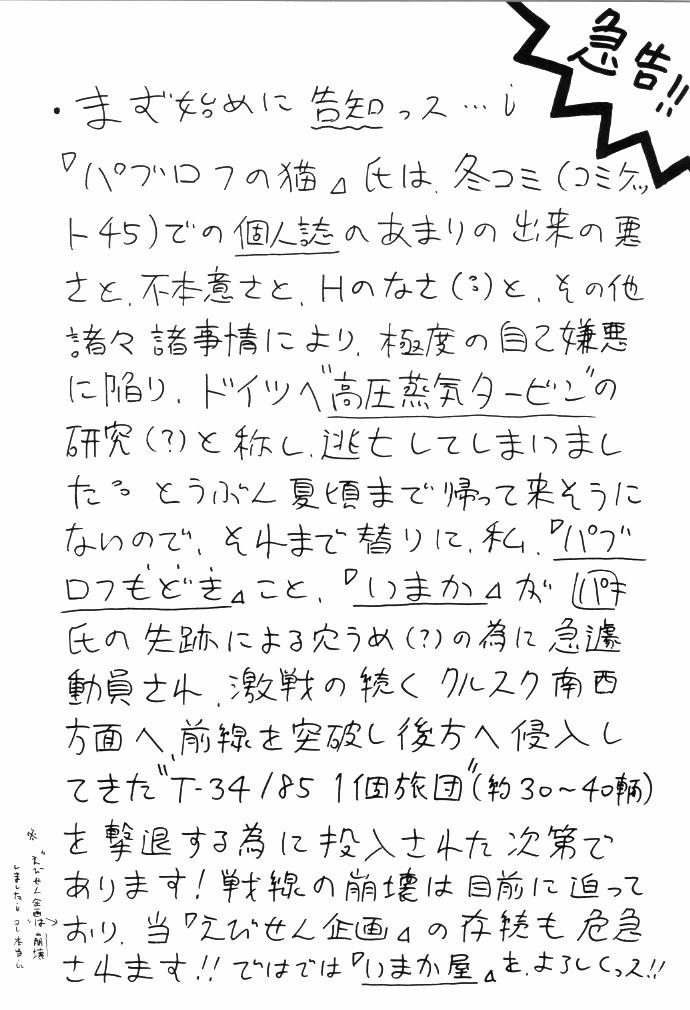 急告!!
・まず始めに告知っス…i
『パブロフの猫』氏は、冬コミ(コミケッ
ト45)での個人誌のあまりの出来の悪
さと、不本意さと、Hのなさ(:)と、その他
諸々諸事情により、極度の自己嫌悪
に陥り、ドイツへ"高圧蒸気タービン"の
研究(?)と称し、逃亡してしまいまし
た。とうぶん夏頃まで帰って来そうに
ないので、それまで替りに、私、『パブ
ロフもどき』こと、『いまか』が パキ
氏の失跡による穴うめ(?)の為に急遽
動員され、激戦の続くクルスク南西
方面へ、前線を突破し後方へ侵入し
てきた"T-34/85 1個旅団"(約30〜40輌)
を撃退する為に投入された次第で
あります!戦線の崩壊は目前に迫って
おり、当『えびせん企画』の存続も危急
されます!!ではでは『いまか屋』を、よろしくっス!!
※"えびせん企画"は崩壊
しました。コレ本当